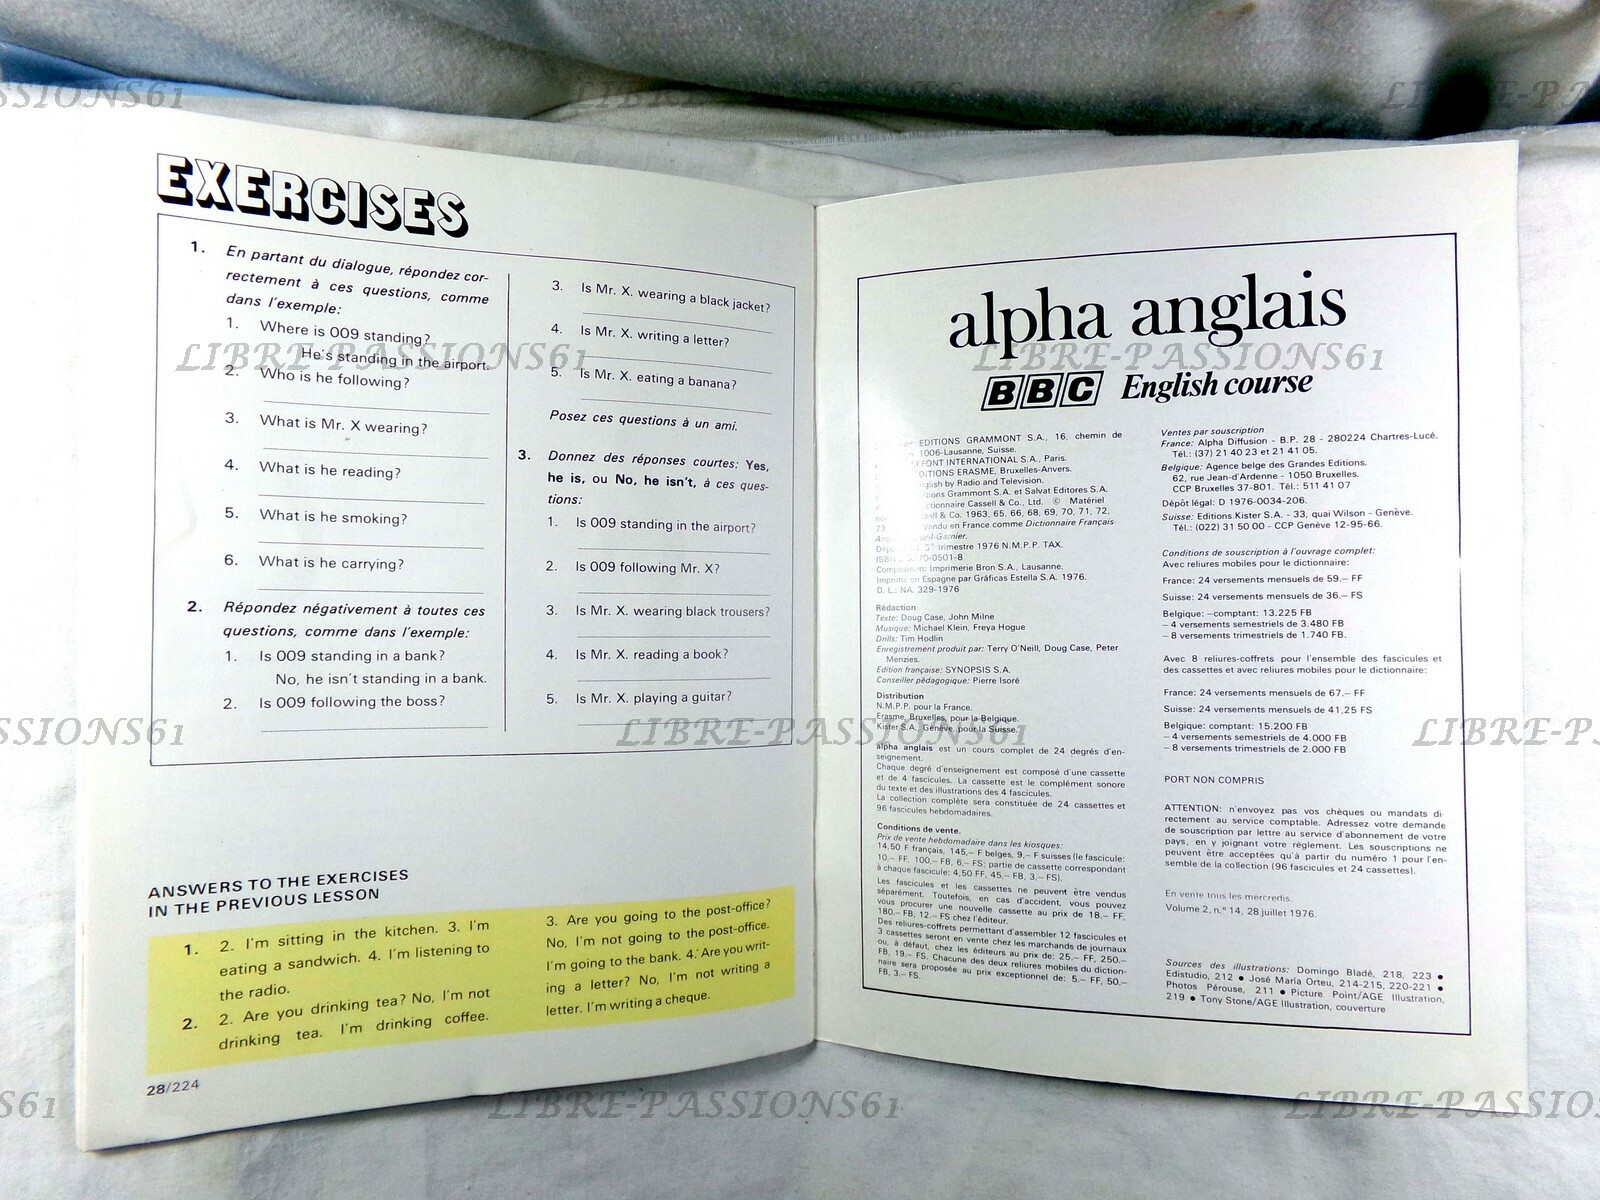 EXERCISES
1. En partant du dialogue, répondez cor-
rectement à ces questions, comme
dans l'exemple:
1. Where is 009 standing?
He's standing in the airport.
2. Who is he following?
3. What is Mr. X wearing?
4. What is he reading?
5. What is he smoking?
6. What is he carrying?
2. Répondez négativement à toutes ces
questions, comme dans l'exemple:
1. Is 009 standing in a bank?
No, he isn't standing in a bank.
2. Is 009 following the boss?
3. Is Mr. X. wearing a black jacket?
4. Is Mr. X. writing a letter?
5. Is Mr. X. eating a banana?
Posez ces questions à un ami.
3. Donnez des réponses courtes: Yes,
he is, ou No, he isn't, à ces ques-
tions:
1. Is 009 standing in the airport?
2. Is 009 following Mr. X?
3. Is Mr. X. wearing black trousers?
4. Is Mr. X. reading a book?
5. Is Mr. X. playing a guitar?
ANSWERS TO THE EXERCISES
IN THE PREVIOUS LESSON
1. 2. I'm sitting in the kitchen. 3. I'm
eating a sandwich. 4. I'm listening to
the radio.
2. 2. Are you drinking tea? No, I'm not
drinking tea. I'm drinking coffee.
3. Are you going to the post-office?
No, I'm not going to the post-office.
I'm going to the bank. 4. Are you writ-
ing a letter? No, I'm not writing a
letter. I'm writing a cheque.
28/224
alpha anglais
BBC English course
EDITIONS GRAMMONT S.A., 16, chemin de
1006-Lausanne, Suisse.
INTERNATIONAL S.A., Paris.
ERASME, Bruxelles-Anvers.
by Radio and Television.
Grammont S.A. et Salvat Editores S.A.
Cassell & Co., Ltd. © Matériel
& Co. 1963, 65, 66, 68, 69, 70, 71, 72,
73 en France comme Dictionnaire Français-
trimestre 1976 N.M.P.P. TAX.
Imprimerie Bron S.A., Lausanne.
en Espagne par Gráficas Estella S.A. 1976.
D. L.: NA. 329-1976
Rédaction
Texte: Doug Case, John Milne
Musique: Michael Klein, Freya Hogue
Drills: Tim Hodlin
Enregistrement produit par: Terry O'Neill, Doug Case, Peter
Menzies.
Edition française: SYNOPSIS S.A.
Conseiller pédagogique: Pierre Isoré
Distribution
N.M.P.P. pour la France.
Erasme, Bruxelles, pour la Belgique.
Kister S.A., Genève, pour la Suisse.
alpha anglais est un cours complet de 24 degrés d'en-
seignement.
Chaque degré d'enseignement est composé d'une cassette
et de 4 fascicules. La cassette est le complément sonore
du texte et des illustrations des 4 fascicules.
La collection complète sera constituée de 24 cassettes et
96 fascicules hebdomadaires.
Conditions de vente.
Prix de vente hebdomadaire dans les kiosques:
14,50 F français, 145,– F belges, 9,– F suisses (le fascicule:
10,– FF, 100,– FB, 6,– FS; partie de cassette correspondant
à chaque fascicule: 4,50 FF, 45,– FB, 3,– FS).
Les fascicules et les cassettes ne peuvent être vendus
séparément. Toutefois, en cas d'accident, vous pouvez
vous procurer une nouvelle cassette au prix de 18.– FF,
180.– FB, 12.– FS chez l'éditeur.
Des reliures-coffrets permettant d'assembler 12 fascicules et
3 cassettes seront en vente chez les marchands de journaux
ou, à défaut, chez les éditeurs au prix de: 25.– FF, 250.–
FB, 19.– FS. Chacune des deux reliures mobiles du diction-
naire sera proposée au prix exceptionnel de: 5.– FF, 50.–
FB, 3.– FS.
Ventes par souscription
France: Alpha Diffusion - B.P. 28 - 280224 Chartres-Lucé.
Tél.: (37) 21 40 23 et 21 41 05.
Belgique: Agence belge des Grandes Editions.
62, rue Jean-d'Ardenne - 1050 Bruxelles.
CCP Bruxelles 37-801. Tél.: 511 41 07
Dépôt légal: D 1976-0034-206.
Suisse: Editions Kister S.A. - 33, quai Wilson - Genève.
Tél.: (022) 31 50 00 - CCP Genève 12-95-66.
Conditions de souscription à l'ouvrage complet:
Avec reliures mobiles pour le dictionnaire:
France: 24 versements mensuels de 59.– FF
Suisse: 24 versements mensuels de 36.– FS
Belgique: –comptant: 13.225 FB
– 4 versements semestriels de 3.480 FB
– 8 versements trimestriels de 1.740 FB.
Avec 8 reliures-coffrets pour l'ensemble des fascicules et
des cassettes et avec reliures mobiles pour le dictionnaire:
France: 24 versements mensuels de 67.– FF
Suisse: 24 versements mensuels de 41,25 FS
Belgique: comptant: 15.200 FB
– 4 versements semestriels de 4.000 FB
– 8 versements trimestriels de 2.000 FB
PORT NON COMPRIS
ATTENTION: n'envoyez pas vos chèques ou mandats di-
rectement au service comptable. Adressez votre demande
de souscription par lettre au service d'abonnement de votre
pays, en y joignant votre règlement. Les souscriptions ne
peuvent être acceptées qu'à partir du numéro 1 pour l'en-
semble de la collection (96 fascicules et 24 cassettes).
En vente tous les mercredis.
Volume 2, n.º 14, 28 juillet 1976.
Sources des illustrations: Domingo Bladé, 218, 223 ●
Edistudio, 212 ● José María Orteu, 214-215, 220-221 ●
Photos Pérouse, 211 ● Picture Point/AGE Illustration,
219 ● Tony Stone/AGE Illustration, couverture
LIBRE-PASSIONS61